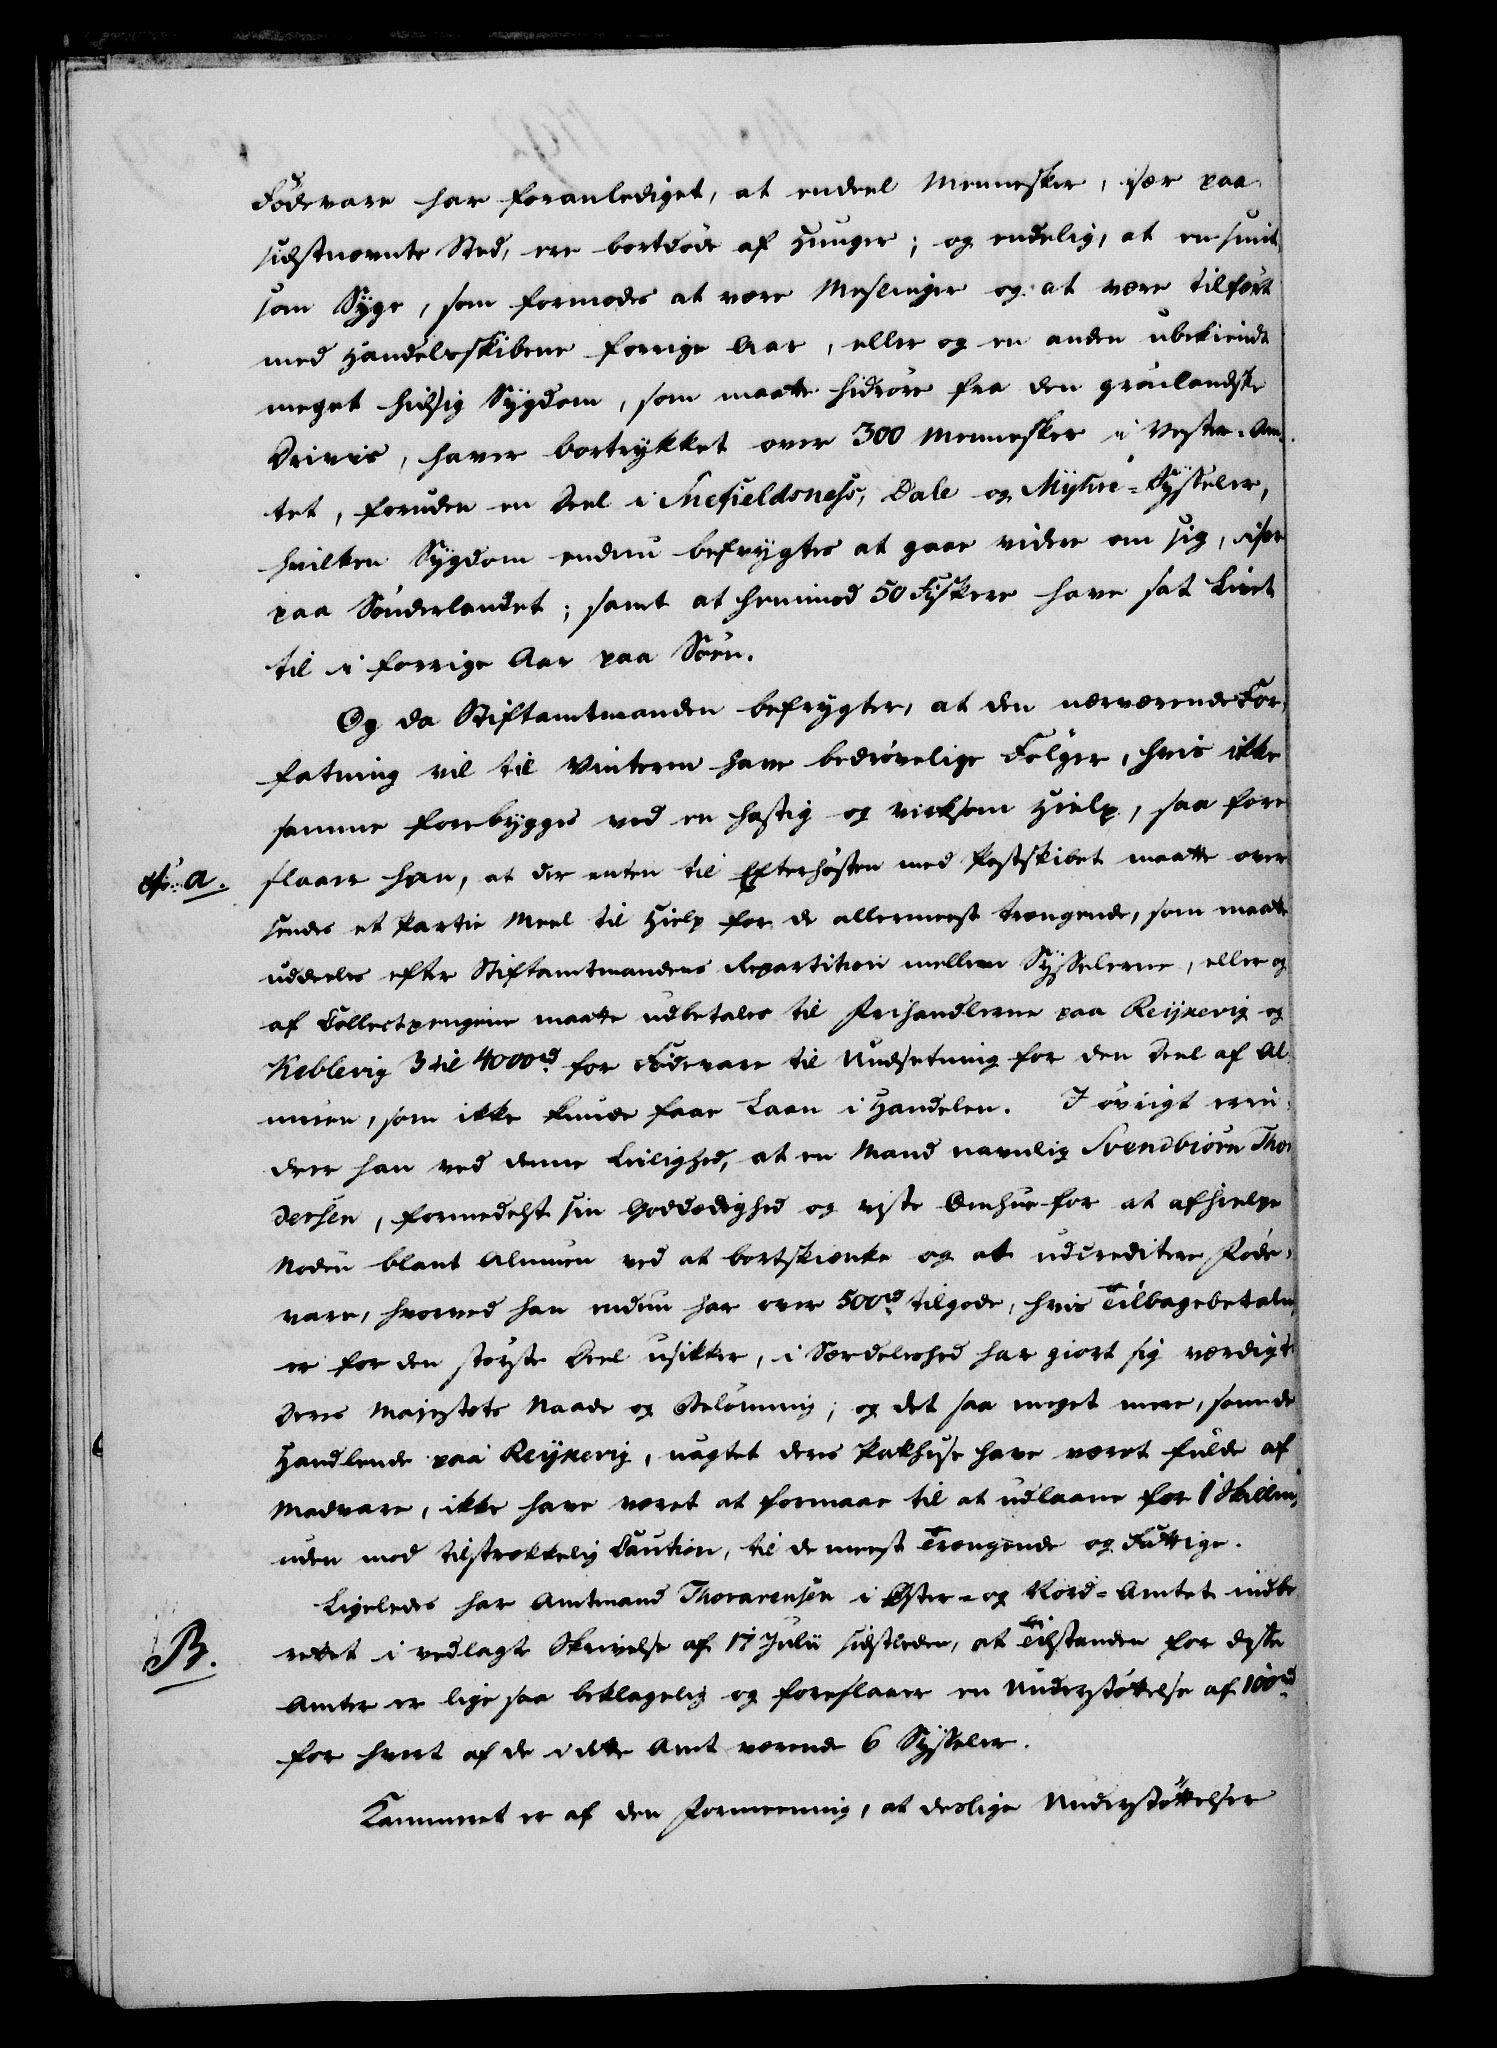 Födevare har foranlediget, at endeel Mennesker, især paa
sidstnævnte Sted, ere bortdöde af Hunger; og endelig, at en smit-
som Syge, som formodes at være Meslinger og at være tilfört
med Handelsskibene forrige Aar, eller og en anden ubekiendt
meget hidsig Sygdom, som maatte hidröre fra den grönlandske
Driviis, haver bortrykket over 300 Mennesker i Vester-Am-
tet, foruden en Deel i Snefieldsness, Dale og Myhre-Sysseler,
hvilken Sygdom endnu befrygtes at gaae videre om sig, især
paa Sönderlandet; samt at henimod 50 Fiskere have sat Livet
til i forrige Aar paa Söen.
Og da Stiftamtmanden befrygter, at den nærværende For-
fatning vil til Vinteren have bedrövelige Fölger, hvis ikke
samme forebygges ved en hastig og virksom Hielp, saa fore-
slaaer han, at der enten til Efterhösten med Postskibet maatte over-
a.
sendes et Partie Meel til Hielp for de allermeest trængende, som maatte
uddeeles efter Stiftamtmandens Repartition mellem Sysselerne, eller og
af Collectpengene maatte udbetales til Frihandlerne paa Reijkevig og
Keblevig 3 til 4000 rd for Födevare til Undsetning for den Deel af Al-
muen, som ikke kunde faae Laan i Handelen. I övrigt erin-
drer han ved denne Leilighed, at en Mand navnlig Svendbiörn Thor-
dersen, formedelst sin Goddædighed og viste Omhue for at afhielpe
Nöden blant Almuen ved at bortskienke og at udcreditere Föde-
vare, hvorved han endnu har over 500 rd tilgode, hvis Tilbagebetaln.
er for den störste Deel usikker, i Særdeleshed har giort sig værdig til
Deres Majestæts Naade og Belönning; og det saa meget mere, som de
Handlende paa Reijkevig, uagtet deres Pakhuse have været fulde af
Madvare, ikke have været at formaae til at udlaane for 1 Skilling
uden mod tilstrækkelig Caution, til de meest Trængende og Fattige.
Ligeledes har Amtmand Thorarensen i Öster- og Nord-Amtet indbe-
B.
rettet i vedlagte Skrivelse af 17 Julii sidstleden, at Tilstanden for disse
Amter er lige saa beklagelig og foreslaaer en Understöttelse af 100 rd
for hvert af de i dette Amt værende 6 Sysseler.
Kammeret er af den Formeening, at deslige Understöttelser